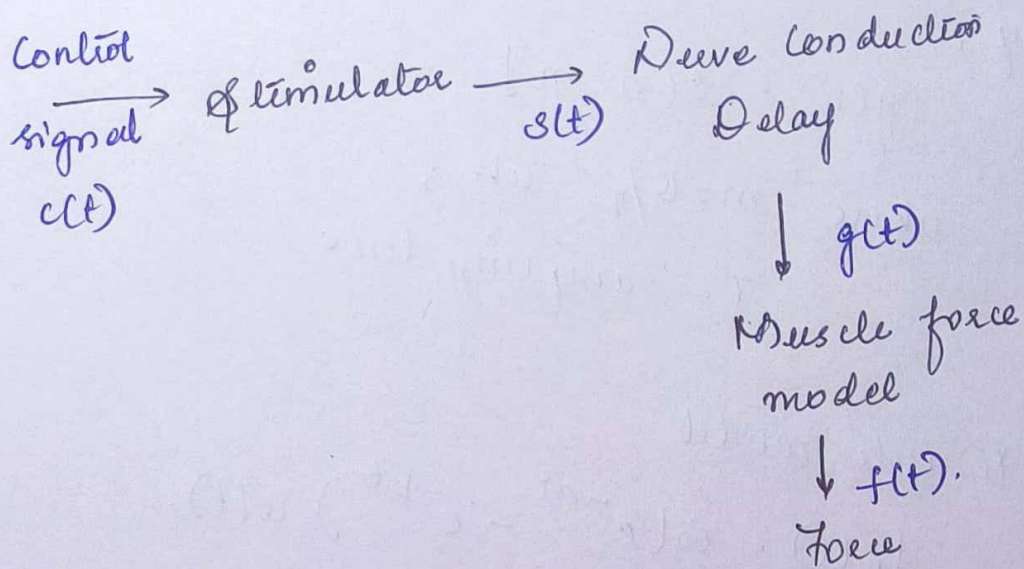 Control
signal
c(t)
Stimulator
s(t)
Nerve Conduction
Delay
g(t)
Muscle force
model
f(t).
Force